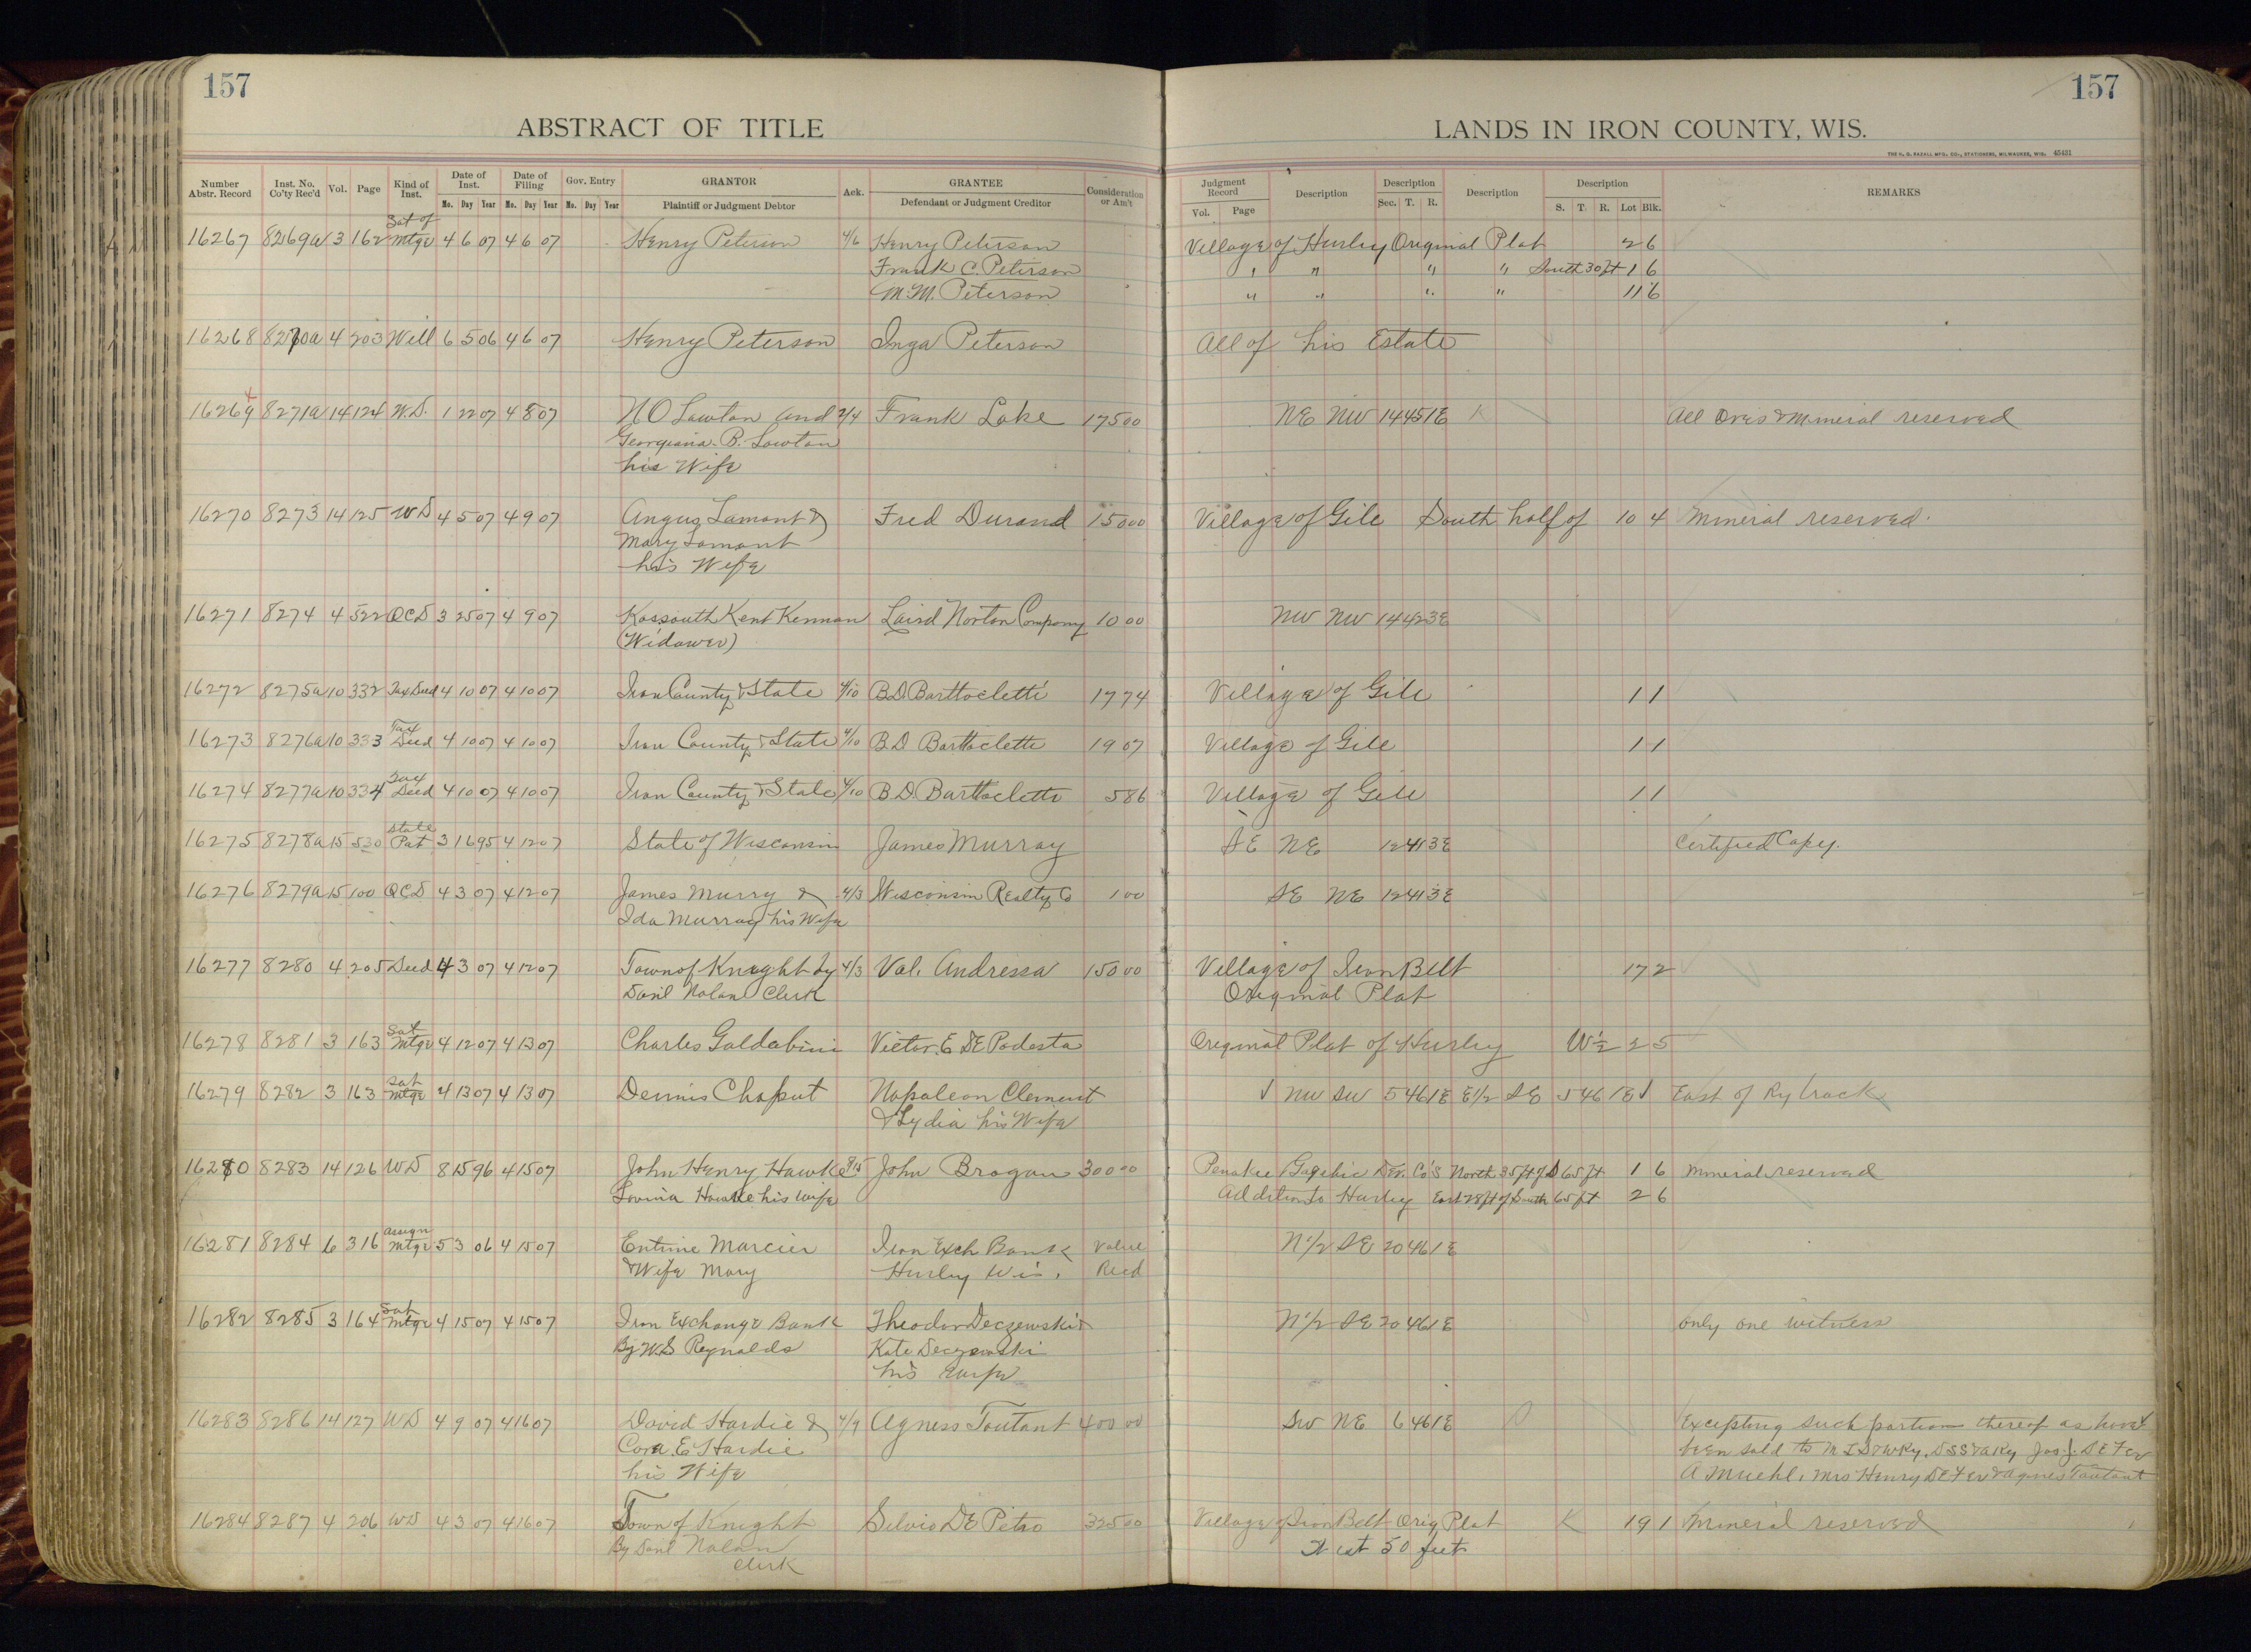 157
157
ABSTRACT OF TITLE
LANDS IN IRON COUNTY, WIS.
THE H. G. RAZALL MFG. CO., STATIONERS, MILWAUKEE, WIS. 45431
Number Abstr. Record | Inst. No. Co'ty Rec'd | Vol. | Page | Kind of Inst. | Date of Inst. Mo. Day Year | Date of Filing Mo. Day Year | Gov. Entry Mo. Day Year | GRANTOR Plaintiff or Judgment Debtor | Ack. | GRANTEE Defendant or Judgment Creditor | Consideration or Am't | Judgment Record Vol. Page | Description | Description Sec. T. R. | Description | Description S. T. R. Lot Blk. | REMARKS
16267 8269a 3 162 Sat of Mtge 4 6 07 4 6 07 Henry Peterson 4/6 Henry Peterson Village of Hurley Original Plat 2 6
Frank C. Peterson " " " " South 30 ft 1 6
M. M. Peterson " " " " 11 6
16268 8270a 4 203 Will 6 5 06 4 6 07 Henry Peterson Inga Peterson All of his Estate
16269 8271a 14 124 W.D. 1 22 07 4 8 07 N O Lawton and 2/4 Frank Lake 175 00 NE NW 14 45 1E All Ores & Mineral reserved
Georgiana B. Lawton
his Wife
16270 8273 14 125 WD 4 5 07 4 9 07 Angus Lamont & Fred Durand 150 00 Village of Gile South half of 10 4 Mineral reserved.
Mary Lamont
his Wife
16271 8274 4 522 QCD 3 25 07 4 9 07 Kossouth Kent Kennan Laird Norton Company 10 00 NW NW 14 42 3E
(Widower)
16272 8275a 10 332 Tax Deed 4 10 07 4 10 07 Iron County & State 4/10 B.D. Barttoclette 17 74 Village of Gile 1 1
16273 8276a 10 333 Tax Deed 4 10 07 4 10 07 Iron County & State 4/10 B.D Barttoclette 19 07 Village of Gile 1 1
16274 8277a 10 334 Tax Deed 4 10 07 4 10 07 Iron County & State 4/10 B.D. Barttoclette 5 86 Village of Gile 1 1
16275 8278a 15 530 State Pat 3 16 95 4 12 07 State of Wisconsin James Murray SE NE 12 41 3E Certified Copy.
16276 8279a 15 100 QCD 4 3 07 4 12 07 James Murry & 4/3 Wisconsin Realty Co 1 00 SE NE 12 41 3E
Ida Murray his Wife
16277 8280 4 205 Deed 4 3 07 4 12 07 Town of Knight by 4/3 Val. Andressa 150 00 Village of Iron Belt 17 2
Danl Nolan Clerk Original Plat
16278 8281 3 163 Sat Mtge 4 12 07 4 13 07 Charles Galdabini Victor. E DE Podesta Original Plat of Hurley W½ 2 5
16279 8282 3 163 Sat Mtge 4 13 07 4 13 07 Dennis Chaput Napoleon Clement NW SW 5 46 1E E1/2 SE 5 46 1E East of Ry track
& Lydia his Wife
16280 8283 14 126 WD 8 15 96 4 15 07 John Henry Hawke 8/15 John Brogan 300 00 Penokee Gogebic Dev. Co's North 35 ft of S 65 ft 1 6 Mineral reserved
Lovina Hawke his wife Addition to Hurley East 28 ft of South 65 ft 2 6
16281 8284 6 316 Assign Mtge 5 3 06 4 15 07 Entime Marcier Iron Exch Bank Value N1/2 SE 20 46 1E
& Wife Mary Hurley Wis. Recd
16282 8285 3 164 Sat Mtge 4 15 07 4 15 07 Iron Exchange Bank Theodor Deczewski & N1/2 SE 20 46 1E only one witness
By W.S Reynolds Kate Deczewski
his wife
16283 8286 14 127 WD 4 9 07 4 16 07 David Hardie & 4/9 Agness Toutant 400 00 SW NE 6 46 1E Excepting such portion thereof as have
Cora. E Hardie been sold to
his Wife A Muehl, Mrs Henry & Agnes Toutant
16284 8287 4 206 WD 4 3 07 4 16 07 Town of Knight Silvio DE Pitro 325 00 Village of Iron Belt Orig Plat 19 1 Mineral reserved
By Danl Nolan 50 feet
Clerk